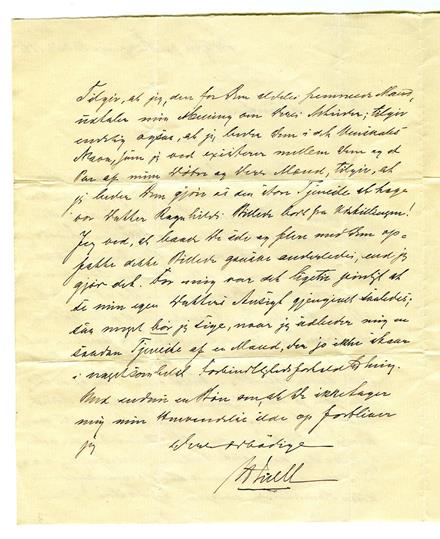 Tilgiv, at jeg, den for Dem aldeles fremmede Mand,
udtaler min Mening om Deres Arbeider; tilgiv
endelig ogsaa, at jeg beder Dem i det
Navn, som jeg ved existerer mellem Dem og et
Par af mine og Deres Mand, tilgiv, at
jeg beder Dem gjøre os den store Tjeneste at tage
vor Datter Ragnhilds Billede bort fra Udstillingen!
Jeg ved, at baade De selv og flere med Dem op-
fatte dette Billede ganske anderledes, end jeg
gjør det. For mig var det pinligt at
se min egen Datters Ansigt gjengivet saaledes;
saa meget bør jeg sige, naar jeg udbeder mig en
saadan Tjeneste af en Mand, der jo ikke staar
i nogetsomhelst Forbindtlighedsforhold til mig.
Med endnu en Bøn om, at De ikke tager
mig min Henvendelse ilde op forbliver
jeg Deres ærbødige